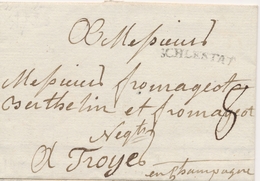 A Messieurs
SCHLESTAT
Messieurs fromageot
Berthelin et fromageot
8
Negts
A Troyes
en Champagne